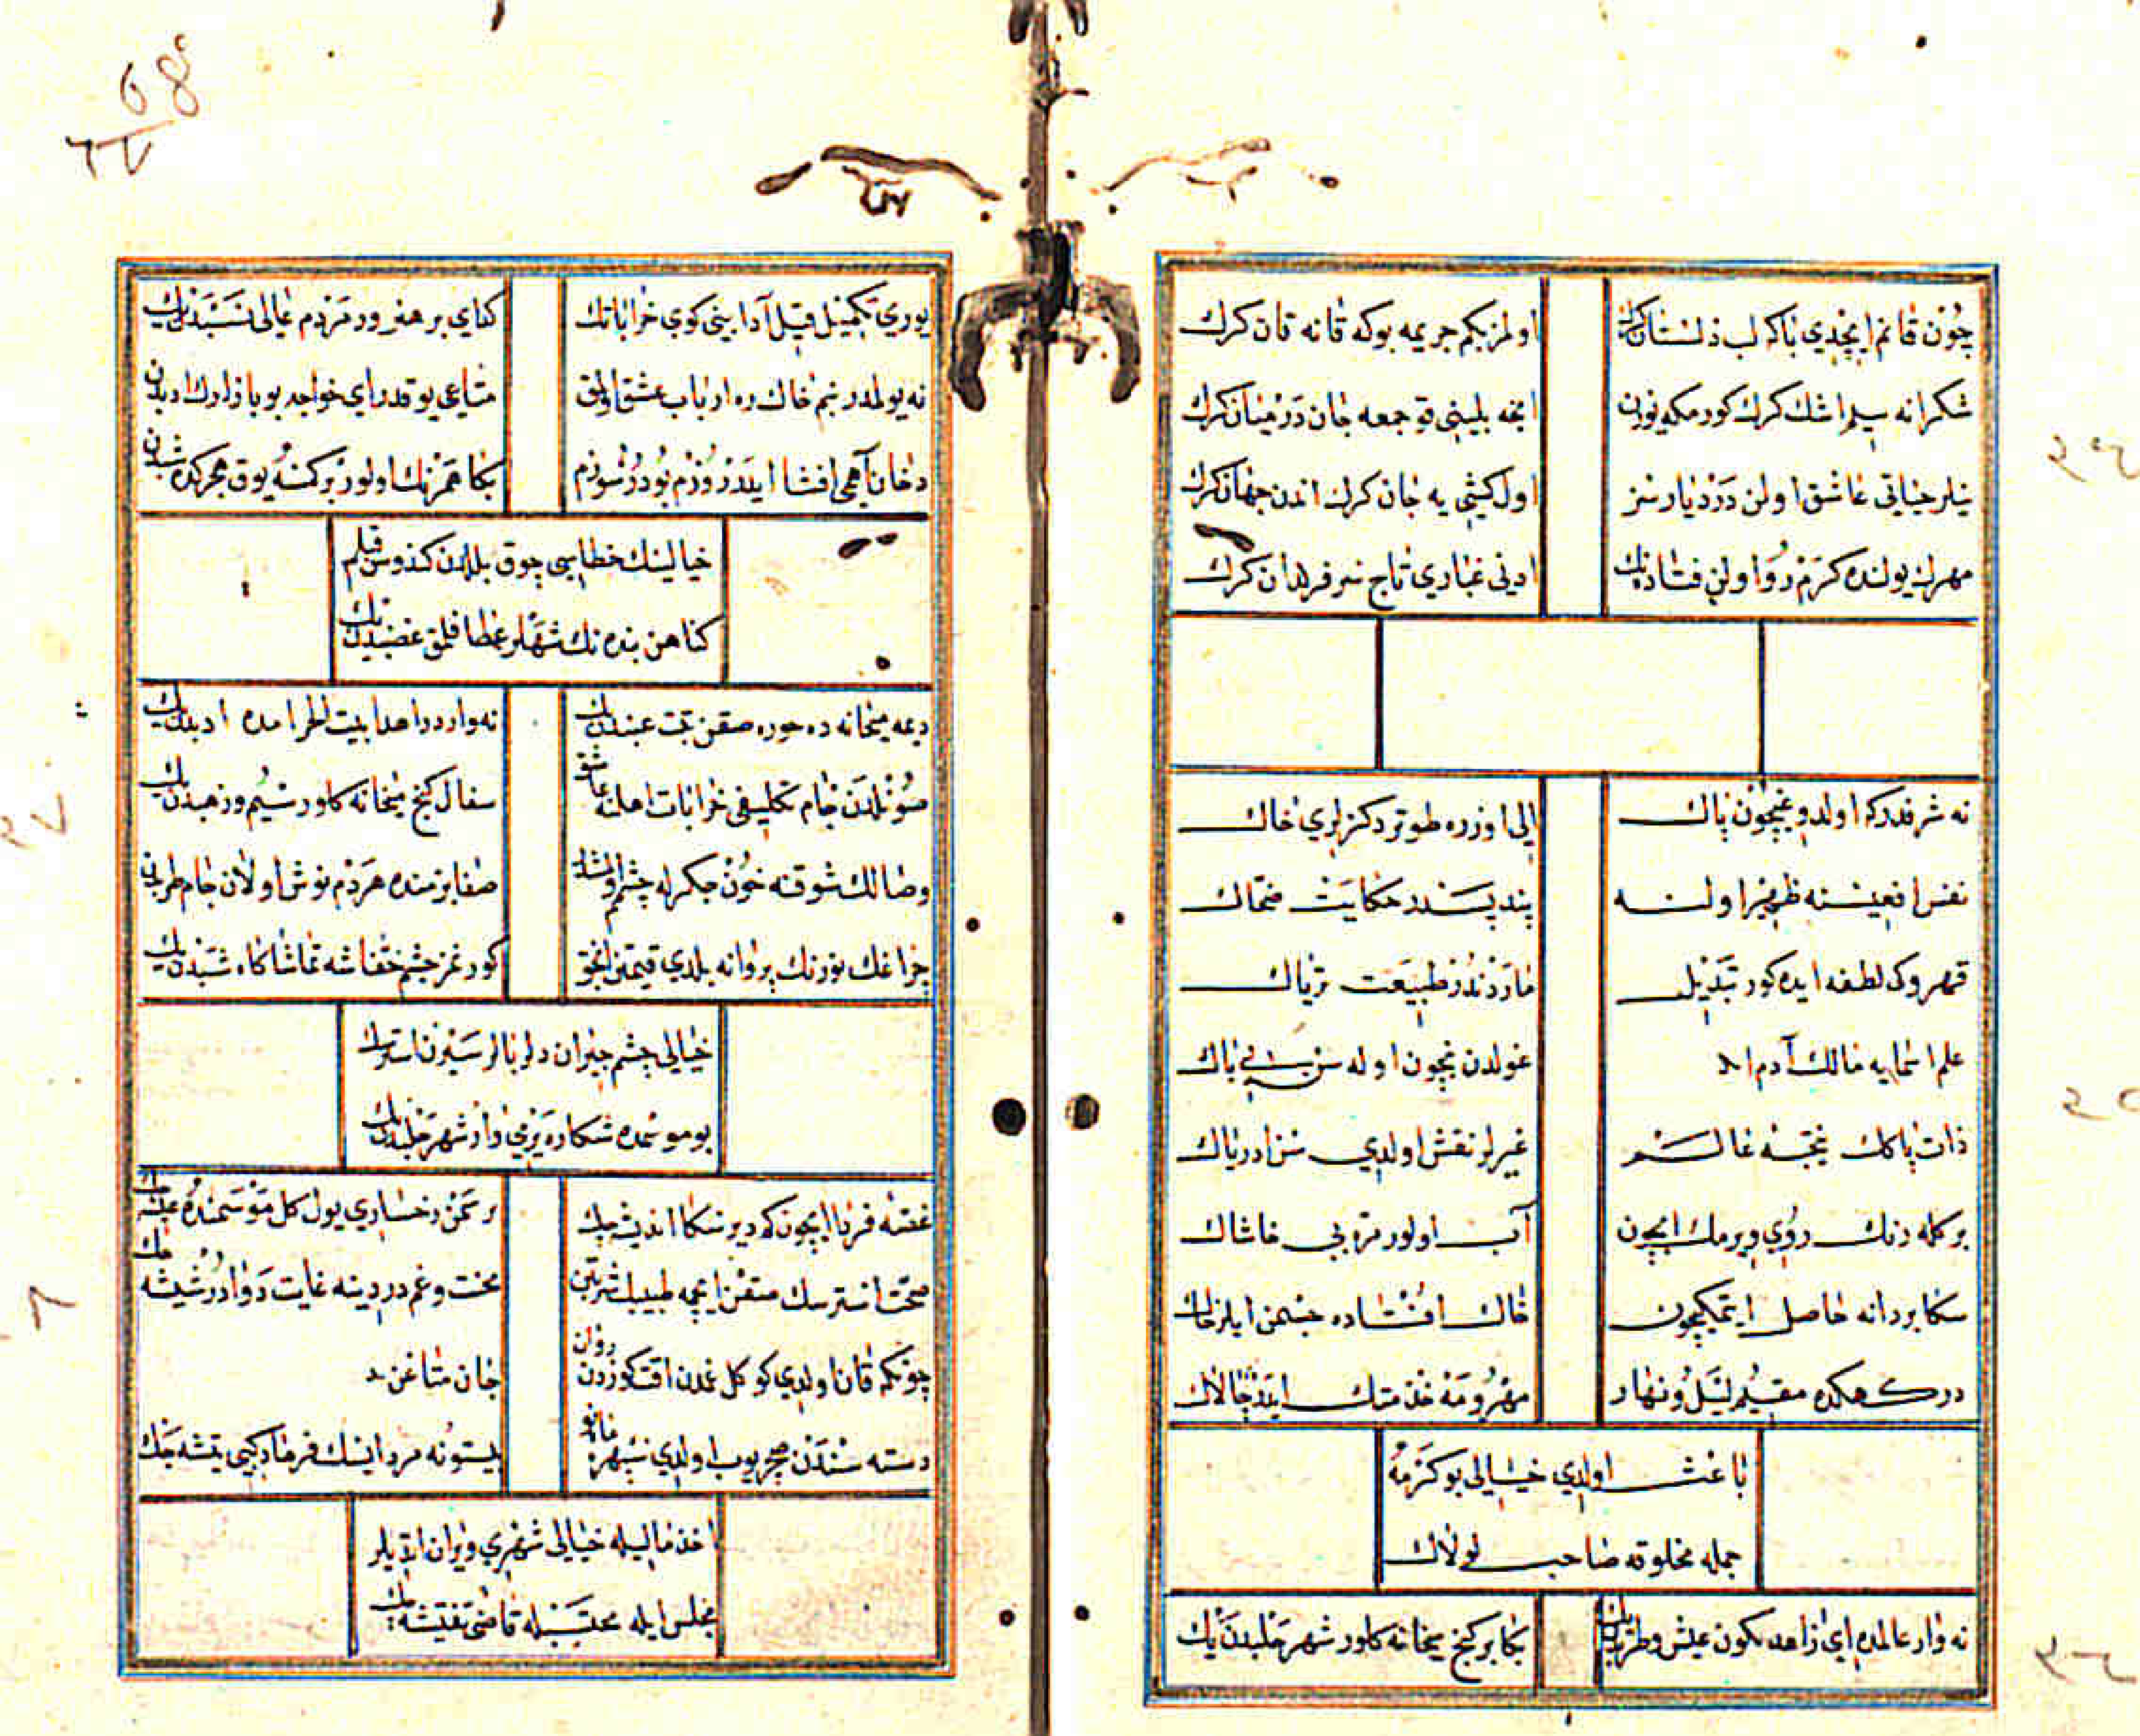 چون قانم ایچدی باکه لب دلستان کرک
اولمز بکم جریمه بو که قانه قان کرک
شکرانه سیم اشک کرک کورمکه یوزن
انجه بلینی قوجمغه جان در میان کرک
نیلر حیاتی عاشق اولن درد یارسز
اول کشی یه جان کرک اندن جهان کرک
مهرک یولنده کرم رو اولن فتاده نک
ادنی غباری تاج سر فرقدان کرک
نه شرفدر که اولدوغیچون پاک
الی اوزره طوتر دکزلری خاک
نفس افعیسنه ظفر اولسه
پند بسدر حکایت ضحاک
قهروکی لطفه ایده کور تبدیل
مار دندر طبیعت تریاک
علم اسمایه مالک آدم
غولدن نیچون اوله سن بی باک
ذات پاکک نتیجه عالم
غیرلر نقش اولدی سن ادراک
بر کله رنک روی ویرمک ایچون
آب اولور مروی خاشاک
سکا بر دانه حاصل ایتمکیچون
خاک افتاده جسمن ایلر خاک
درکهکده مقیم لیل و نهار
مهر و مه خدمتک ایدر چالاک
باعث اولدی خیالی بو کرمه
جمله مخلوقه صاحب لولاک
نه وار عالمده ای زاهد بکون عیش و طربدن یک
بکا بر کنج میخانه کلور شهر حلبدن یک
یوری تکمیل قیل آدابینی کوی خراباتک
کدای بر هنرور مردم عالی نسبدن یک
نه یولدر بنم خاک ره ارباب عشق اولمق
متاعی یوقدر ای خواجه بو بازارک ادبدن
دخان آهمی افشا ایدر روزم بودر سوزم
بکا همرنک اولور بر کمسه یوق هجرکده شبدن
خیالینک خطاسی چوق بللدن کندوسن قیلم
کناهن بنده نک شهلر عطا قلمق غضبدن یک
دیمه میخانه ده حوره صقن بنت عنبدن یک
نه وار در زاهدا بیت الحرامده ادبدن یک
صونلدن جام تکلیفی خرابات اهلنه عاشق
سفال کنج میخانه کلور سیم و زهبدن یک
وصالک شوقنه خون جکرله چشم
صفا بزمنده هردم نوش اولان جام طربدن
چراغک نورینک پروانه بلدی قیمتن انجق
کورنمز چشم خفاشه تماشاکاه شبدن یک
خیالی چشم جیران دلربالر سیرن استرسک
بو موسمده شکاره یر می وار شهر حلبدن یک
غصه فردا ایچون که دیر سکا اندیشه چک
بر سمن رخساری یول کل موسمنده عیشه چک
صحت استرسک صقن ایچمه طبیبک شربتن
محنت و غم دردینه غایت دوادر شیشه چک
چونکم قان اولدی کوکل غمدن اقت کوزدن روان
جان متاعن
دسته سندن هجر یوب اولدی
بیستونه مرد ایسک فرهاد کبی تیشه چک
اخذ مالیله خیالی شهری ویران ایتدیلر
مجلس ایله محتسبله قاضی تفتیشه چک